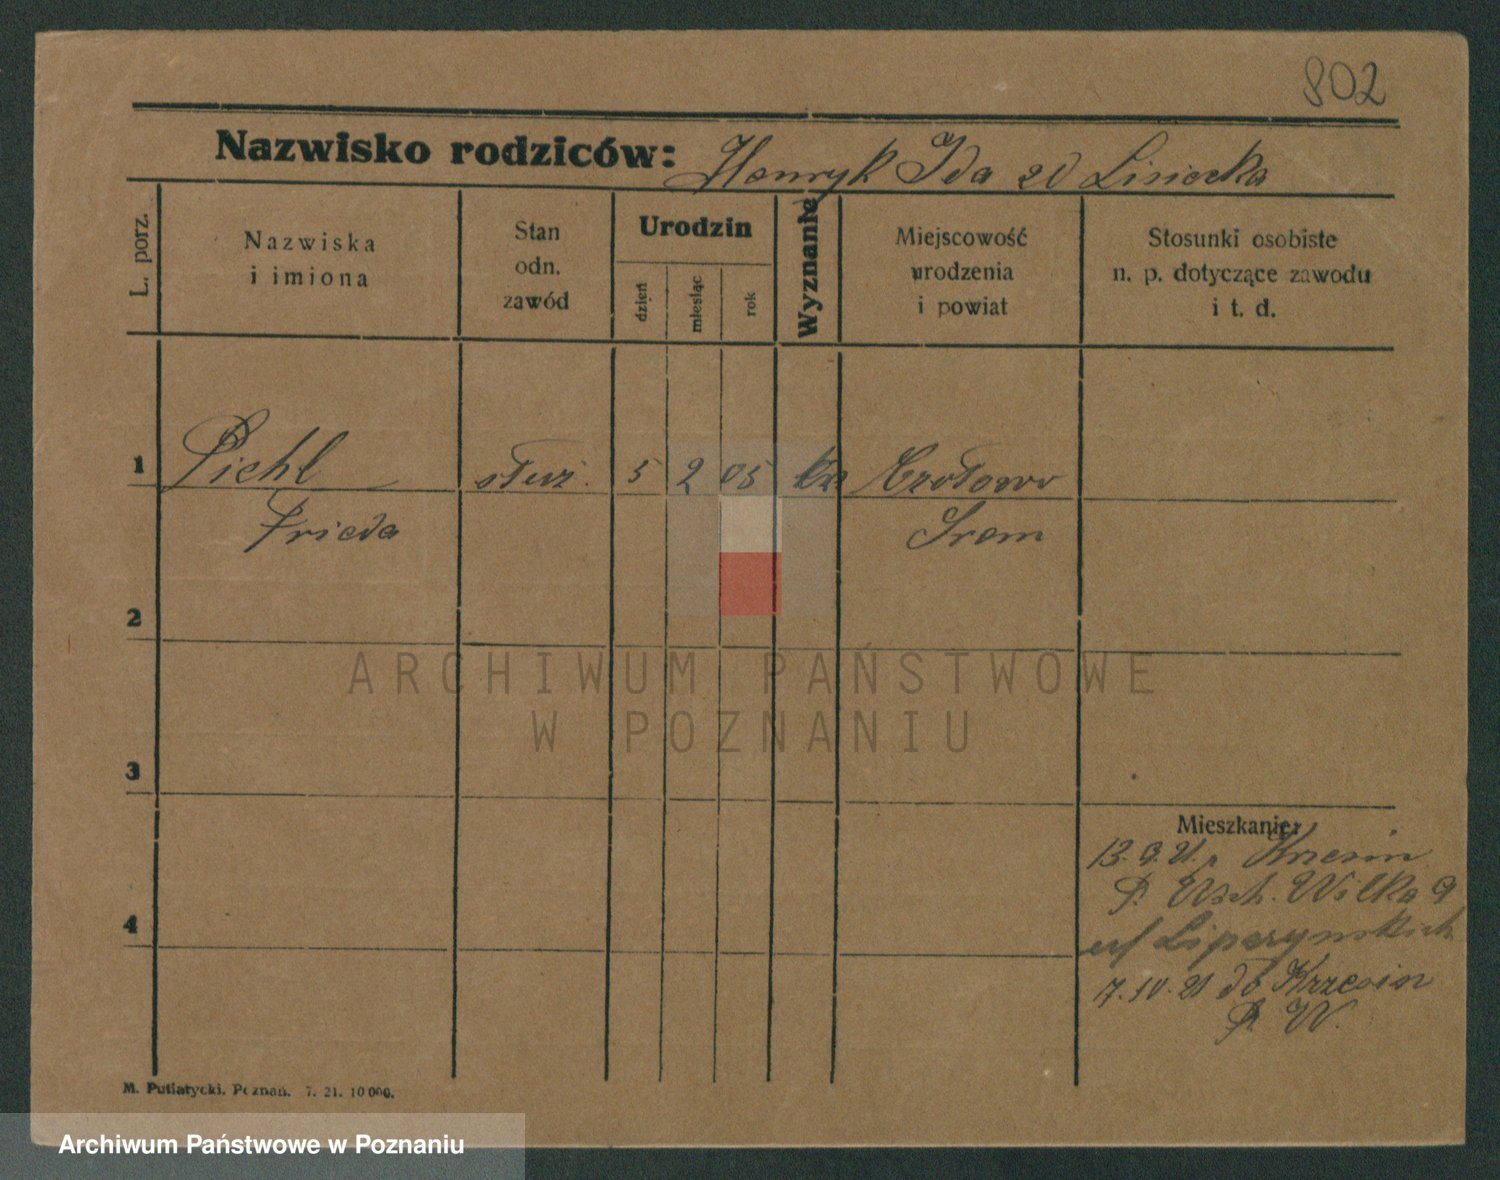 802
Nazwisko rodziców: Henryk Ida zd Lisiecka
L. porz.
Nazwiska
i imiona
Stan
odn.
zawód
Urodzin
dzień
miesiąc
rok
Wyznanie
Miejscowość
urodzenia
i powiat
Stosunki osobiste
n. p. dotyczące zawodu
i t. d.
1 Piehl służ. 5 2 05 Krotowo
Frieda Srem
2
ARCHIWUM PAŃSTWOWE
W POZNANIU
3
Mieszkanie:
13.9.21. Krzesin
P. Wsch. Wilka 9
4
u/ Liperzynskich
7.IV.21 do Krzesin
P. W.
M. Putiatycki. Poznań. 7. 21. 10000.
Archiwum Państwowe w Poznaniu